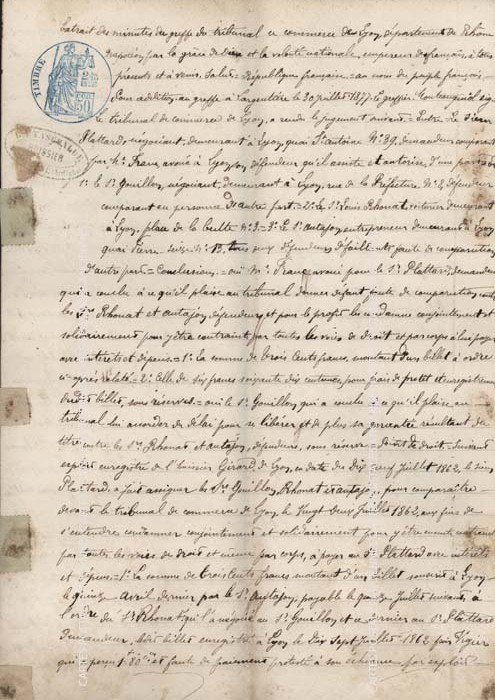 Extrait des minutes du greffe du tribunal de commerce de Lyon, département du Rhône
Napoléon, par la grâce de dieu et la volonté nationale, empereur des français, à tous
présents et à venir, Salut = République française = au nom du peuple français =
Pour addition au greffe à l'argentière le 30 juillet 1877. Le greffier
TIMBRE
le tribunal de commerce de Lyon, a rendu le jugement suivant = Entre Le Sieur
Plattard négociant, demeurant à Lyon, quai St antoine N° 39, demandeur comparant
par Me Franc, avoué à Lyon, défendeur, qu'il assiste et autorise, d'une part et
1° le Sr Gouillon, négociant, demeurant à Lyon, rue de la Préfecture N° 2, défendeur
comparant en personne d'autre part = 2° Le Sr Louis Rhonat, voiturier demeurant
à Lyon, place de la butte N° 3 = 3° le Sr autajoy, entrepreneur demeurant à Lyon
quai Pierre Scize N° 13, tous deux défendeurs défaillants faute de comparution
d'autre part = Conclusions = ouï Me Franc avoué pour le Sr Plattard, demandeur
qui a conclu à ce qu'il plaise au tribunal donner défaut faute de comparution contre
les Srs Rhonat et autajoy, défendeurs, et pour le profit les condamner conjointement et
solidairement pour y être contraint par toutes les voies de droit et par corps à lui payer
avec intérêts et dépens = 1° La somme de trois cents francs, montant d'un billet à ordre
ci-après relaté = 2° Celle de six francs soixante dix centimes, pour frais de protêt et enregistrement
dudit billet, sous réserves = ouï le Sr Gouillon, qui a conclu à ce qu'il plaise au
tribunal lui accorder du délai pour se libérer et de plus sa garantie résultant du
titre contre les Srs Rhonat, et autajoy, défendeurs, sous réserve = Point de droit = Suivant
exploit enregistré de l'huissier Girard, de Lyon, en date du Dix neuf Juillet 1862, le sieur
Plattard, a fait assigner les Srs Gouillon, Rhonat et autajoy, pour comparaître
devant le tribunal de commerce de Lyon, le Vingt deux Juillet 1862, aux fins de
s'entendre condamner conjointement et solidairement pour y être contraint
par toutes les voies de droit et même par corps, à payer au Sr Plattard avec intérêts
et dépens = 1° La somme de trois cents francs montant d'un billet souscrit à Lyon
le quinze avril dernier par le Sr autajoy, payable le quinze Juillet suivant, à
l'ordre du Sr Rhonat qui l'a négocié au Sr Gouillon, et ce dernier au Sr Plattard
demandeur, ledit billet enregistré à Lyon le Dix Sept Juillet 1862 par Vigier
qui perçut et faute de paiement protesté à son échéance par exploit